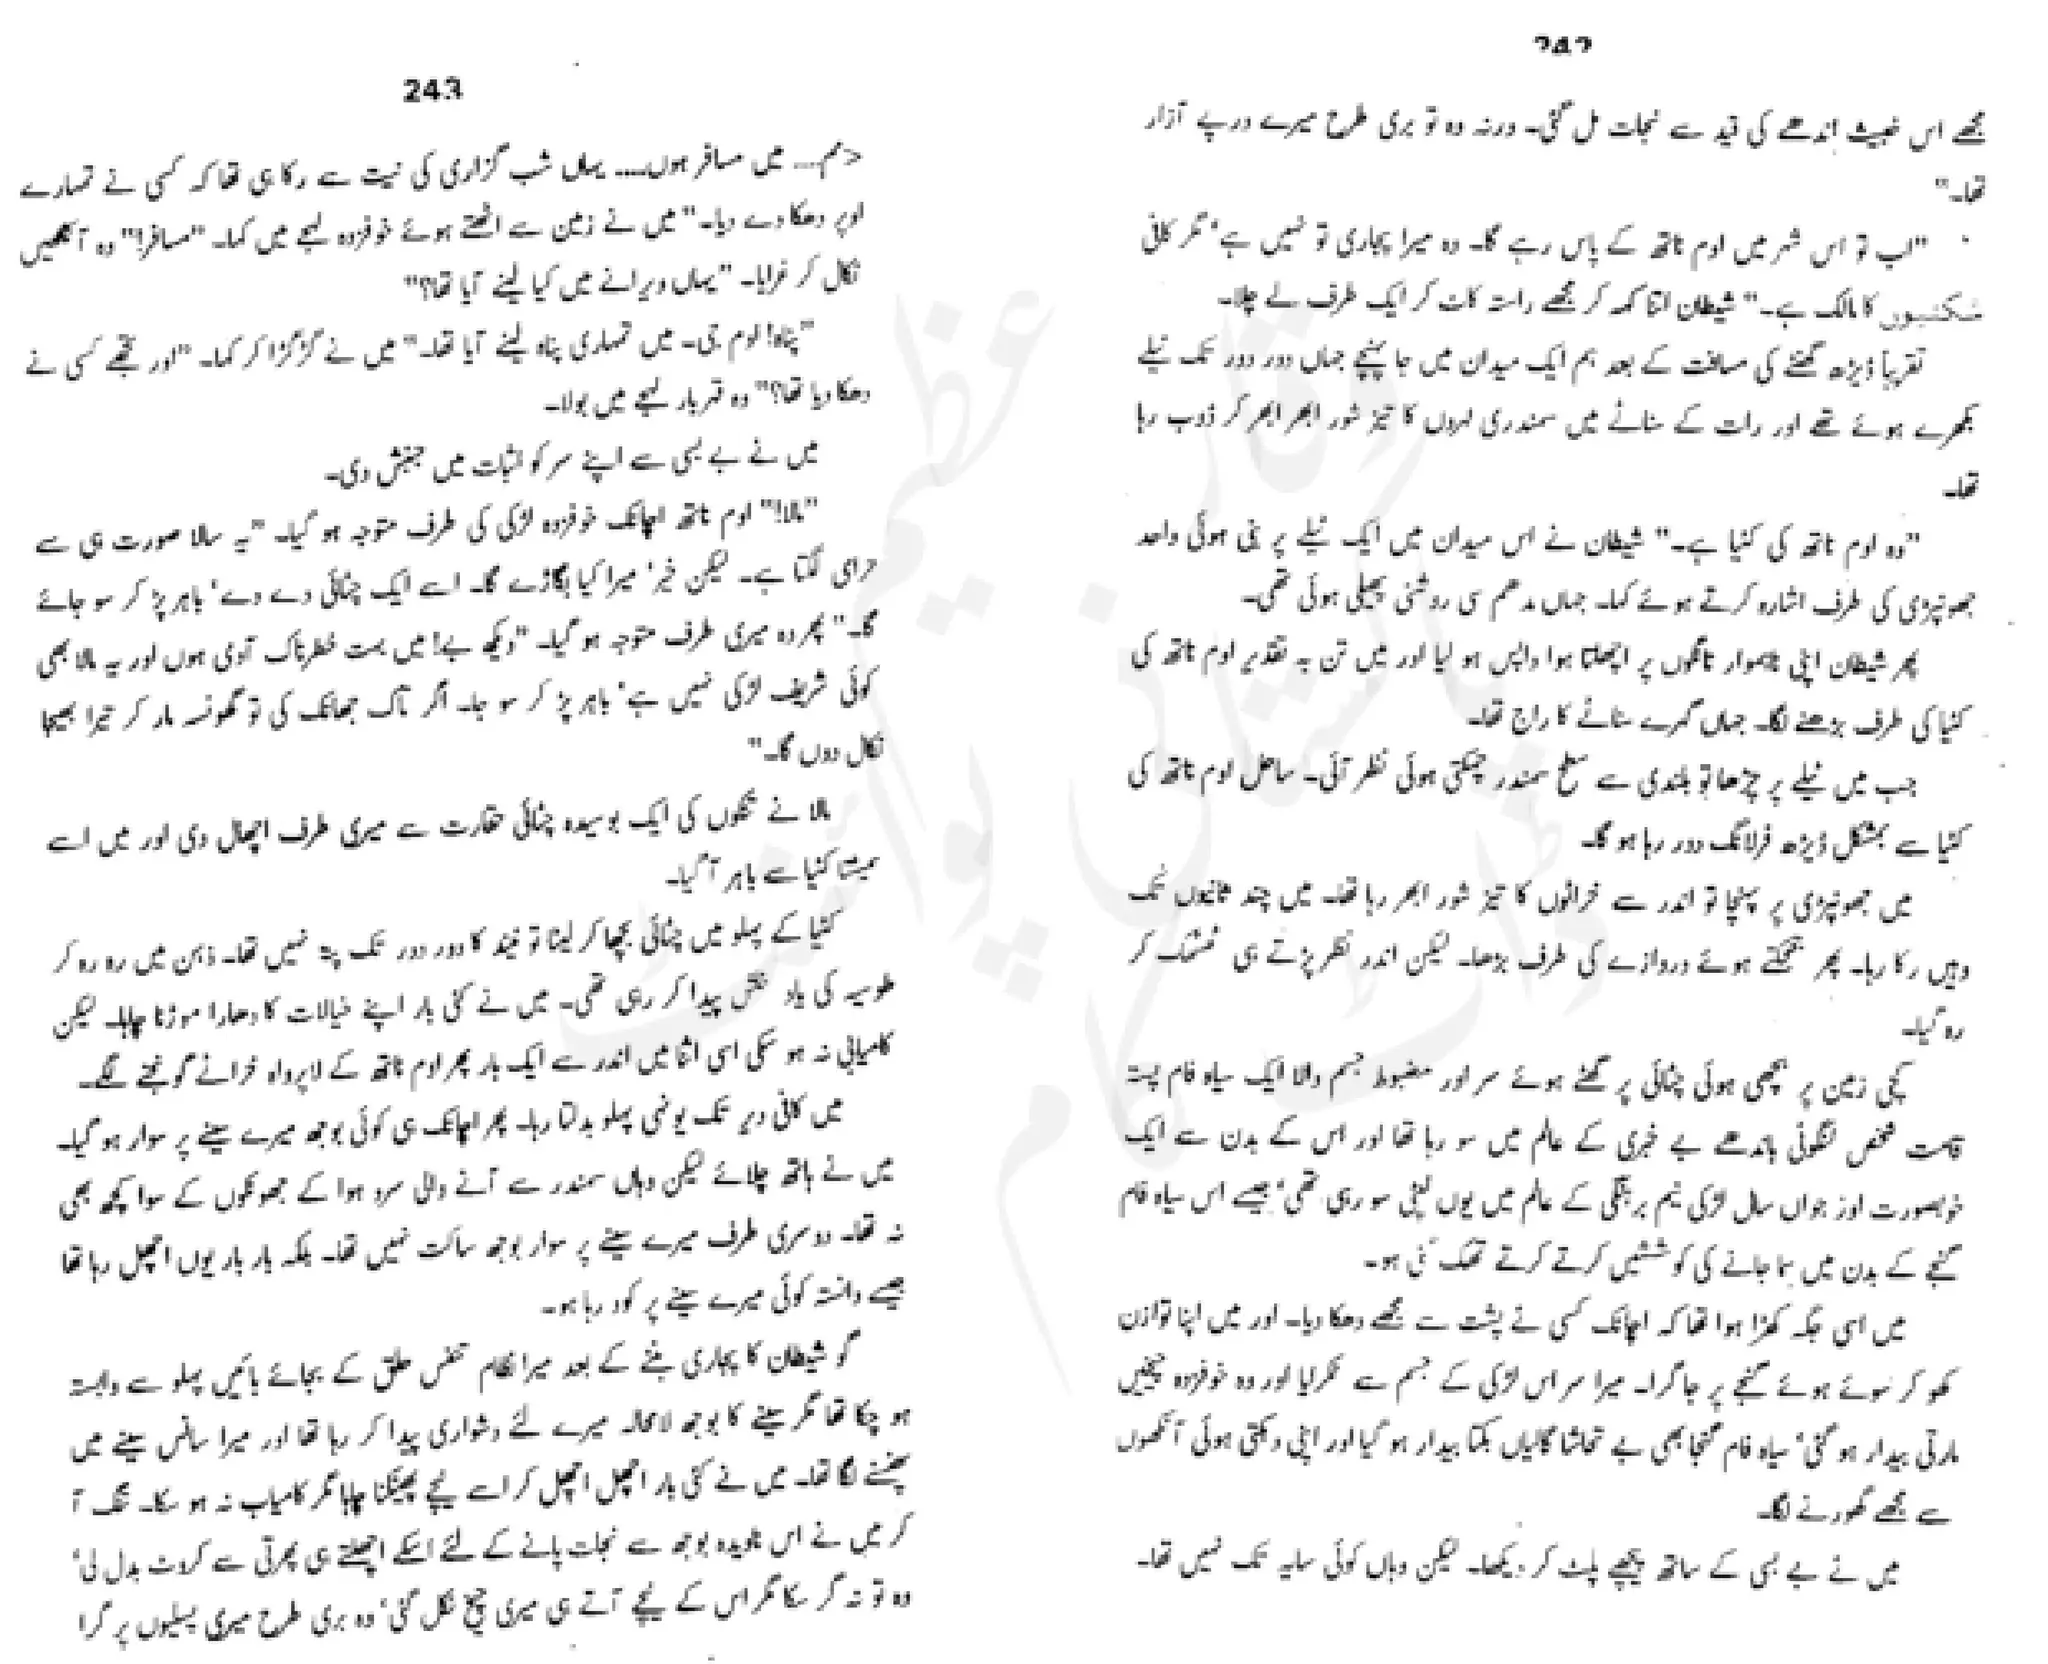 242
مجھے اس خبیث اندھے کی قید سے نجات مل گئی۔ ورنہ وہ تو بری طرح میرے درپے آزار
تھا۔"
"اب تو اس شہر میں اوم ناتھ کے پاس رہے گا۔ وہ میرا پجاری تو نہیں ہے' مگر کافی
شکتیوں کا مالک ہے۔" شیطان اتنا کہہ کر مجھے راستہ کاٹ کر ایک طرف لے چلا۔
تقریباً ڈیڑھ گھنٹے کی مسافت کے بعد ہم ایک میدان میں جا پہنچے جہاں دور دور تک ٹیلے
بکھرے ہوئے تھے اور رات کے سناٹے میں سمندری لہروں کا تیز شور ابھر ابھر کر ڈوب رہا
تھا۔
"وہ اوم ناتھ کی کٹیا ہے۔" شیطان نے اس میدان میں ایک ٹیلے پر بنی ہوئی واحد
جھونپڑی کی طرف اشارہ کرتے ہوئے کہا۔ جہاں مدھم سی روشنی پھیلی ہوئی تھی۔
پھر شیطان اپنی ناہموار ٹانگوں پر اچھلتا ہوا واپس ہو لیا اور میں تن بہ تقدیر اوم ناتھ کی
کٹیا کی طرف بڑھنے لگا۔ جہاں گہرے سناٹے کا راج تھا۔
جب میں ٹیلے پر چڑھا تو بلندی سے سطح سمندر چمکتی ہوئی نظر آئی۔ ساحل اوم ناتھ کی
کٹیا سے بمشکل ڈیڑھ فرلانگ دور رہا ہو گا۔
میں جھونپڑی پر پہنچا تو اندر سے خراٹوں کا تیز شور ابھر رہا تھا۔ میں چند ثانیوں تک
وہیں رکا رہا۔ پھر جھجکتے ہوئے دروازے کی طرف بڑھا۔ لیکن اندر نظر پڑتے ہی ٹھٹھک کر
رہ گیا۔
کچی زمین پر بچھی ہوئی چٹائی پر گھٹے ہوئے سر اور مضبوط جسم والا ایک سیاہ فام پستہ
قامت شخص لنگوٹی باندھے بے خبری کے عالم میں سو رہا تھا اور اس کے بدن سے ایک
خوبصورت اور جواں سال لڑکی نیم برہنگی کے عالم میں یوں لپٹی سو رہی تھی' جیسے اس سیاہ فام
گنجے کے بدن میں سما جانے کی کوششیں کرتے کرتے تھک گئی ہو۔
میں اسی جگہ کھڑا ہوا تھا کہ اچانک کسی نے پشت سے مجھے دھکا دیا۔ اور میں اپنا توازن
کھو کر سوئے ہوئے گنجے پر جا گرا۔ میرا سر اس لڑکی کے جسم سے ٹکرایا اور وہ خوفزدہ چیخیں
مارتی بیدار ہو گئی' سیاہ فام گنجا بھی بے تحاشا گالیاں بکتا بیدار ہو گیا اور اپنی دہکتی ہوئی آنکھوں
سے مجھے گھورنے لگا۔
میں نے بے بسی کے ساتھ پیچھے پلٹ کر دیکھا۔ لیکن وہاں کوئی سایہ تک نہیں تھا۔
243
"مم.... میں مسافر ہوں.... یہاں شب گزاری کی نیت سے رکا ہی تھا کہ کسی نے تمہارے
اوپر دھکا دے دیا۔" میں نے زمین سے اٹھتے ہوئے خوفزدہ لہجے میں کہا۔ "مسافر!" وہ آنکھیں
نکال کر غرایا۔ "یہاں ویرانے میں کیا لینے آیا تھا؟"
"پناہ! اوم جی۔ میں تمہاری پناہ لینے آیا تھا۔" میں نے گڑگڑا کر کہا۔ "اور تجھے کسی نے
دھکا دیا تھا؟" وہ قہربار لہجے میں بولا۔
میں نے بے بسی سے اپنے سر کو اثبات میں جنبش دی۔
"مالا!" اوم ناتھ اچانک خوفزدہ لڑکی کی طرف متوجہ ہو گیا۔ "یہ سالا صورت ہی سے
حرامی لگتا ہے۔ لیکن خیر' میرا کیا بگاڑے گا۔ اسے ایک چٹائی دے دے' باہر پڑ کر سو جائے
گا۔" پھر وہ میری طرف متوجہ ہو گیا۔ "دیکھ بے! میں بہت خطرناک آدمی ہوں اور یہ مالا بھی
کوئی شریف لڑکی نہیں ہے' باہر پڑ کر سو جا۔ اگر تاک جھانک کی تو گھونسہ مار کر تیرا بھیجا
نکال دوں گا۔"
مالا نے تنکوں کی ایک بوسیدہ چٹائی حقارت سے میری طرف اچھال دی اور میں اسے
سمیٹتا کٹیا سے باہر آ گیا۔
کٹیا کے پہلو میں چٹائی بچھا کر لیٹا تو نیند کا دور دور تک پتہ نہیں تھا۔ ذہن میں رہ رہ کر
طوسیہ کی یاد خلش پیدا کر رہی تھی۔ میں نے کئی بار اپنے خیالات کا دھارا موڑنا چاہا۔ لیکن
کامیابی نہ ہو سکی اسی اثنا میں اندر سے ایک بار پھر اوم ناتھ کے لاپرواہ خراٹے گونجنے لگے۔
میں کافی دیر تک یونہی پہلو بدلتا رہا۔ پھر اچانک ہی کوئی بوجھ میرے سینے پر سوار ہو گیا۔
میں نے ہاتھ چلائے لیکن وہاں سمندر سے آنے والی سرد ہوا کے جھونکوں کے سوا کچھ بھی
نہ تھا۔ دوسری طرف میرے سینے پر سوار بوجھ ساکت نہیں تھا۔ بلکہ بار بار یوں اچھل رہا تھا
جیسے دانستہ کوئی میرے سینے پر کود رہا ہو۔
گو شیطان کا پجاری بننے کے بعد میرا نظام تنفس حلق کے بجائے بائیں پہلو سے وابستہ
ہو چکا تھا مگر سینے کا بوجھ لامحالہ میرے لئے دشواری پیدا کر رہا تھا اور میرا سانس سینے میں
پھنسنے لگا تھا۔ میں نے کئی بار اچھل اچھل کر اسے نیچے پھینکنا چاہا مگر کامیاب نہ ہو سکا۔ تنگ آ
کر میں نے اس نادیدہ بوجھ سے نجات پانے کے لئے اسکے اچھلتے ہی پھرتی سے کروٹ بدل لی'
وہ تو نہ گر سکا مگر اس کے نیچے آتے ہی میری چیخ نکل گئی' وہ بری طرح میری پسلیوں پر گرا
وقار عظیم
پاکستانی پوائنٹ
ڈاٹ کام